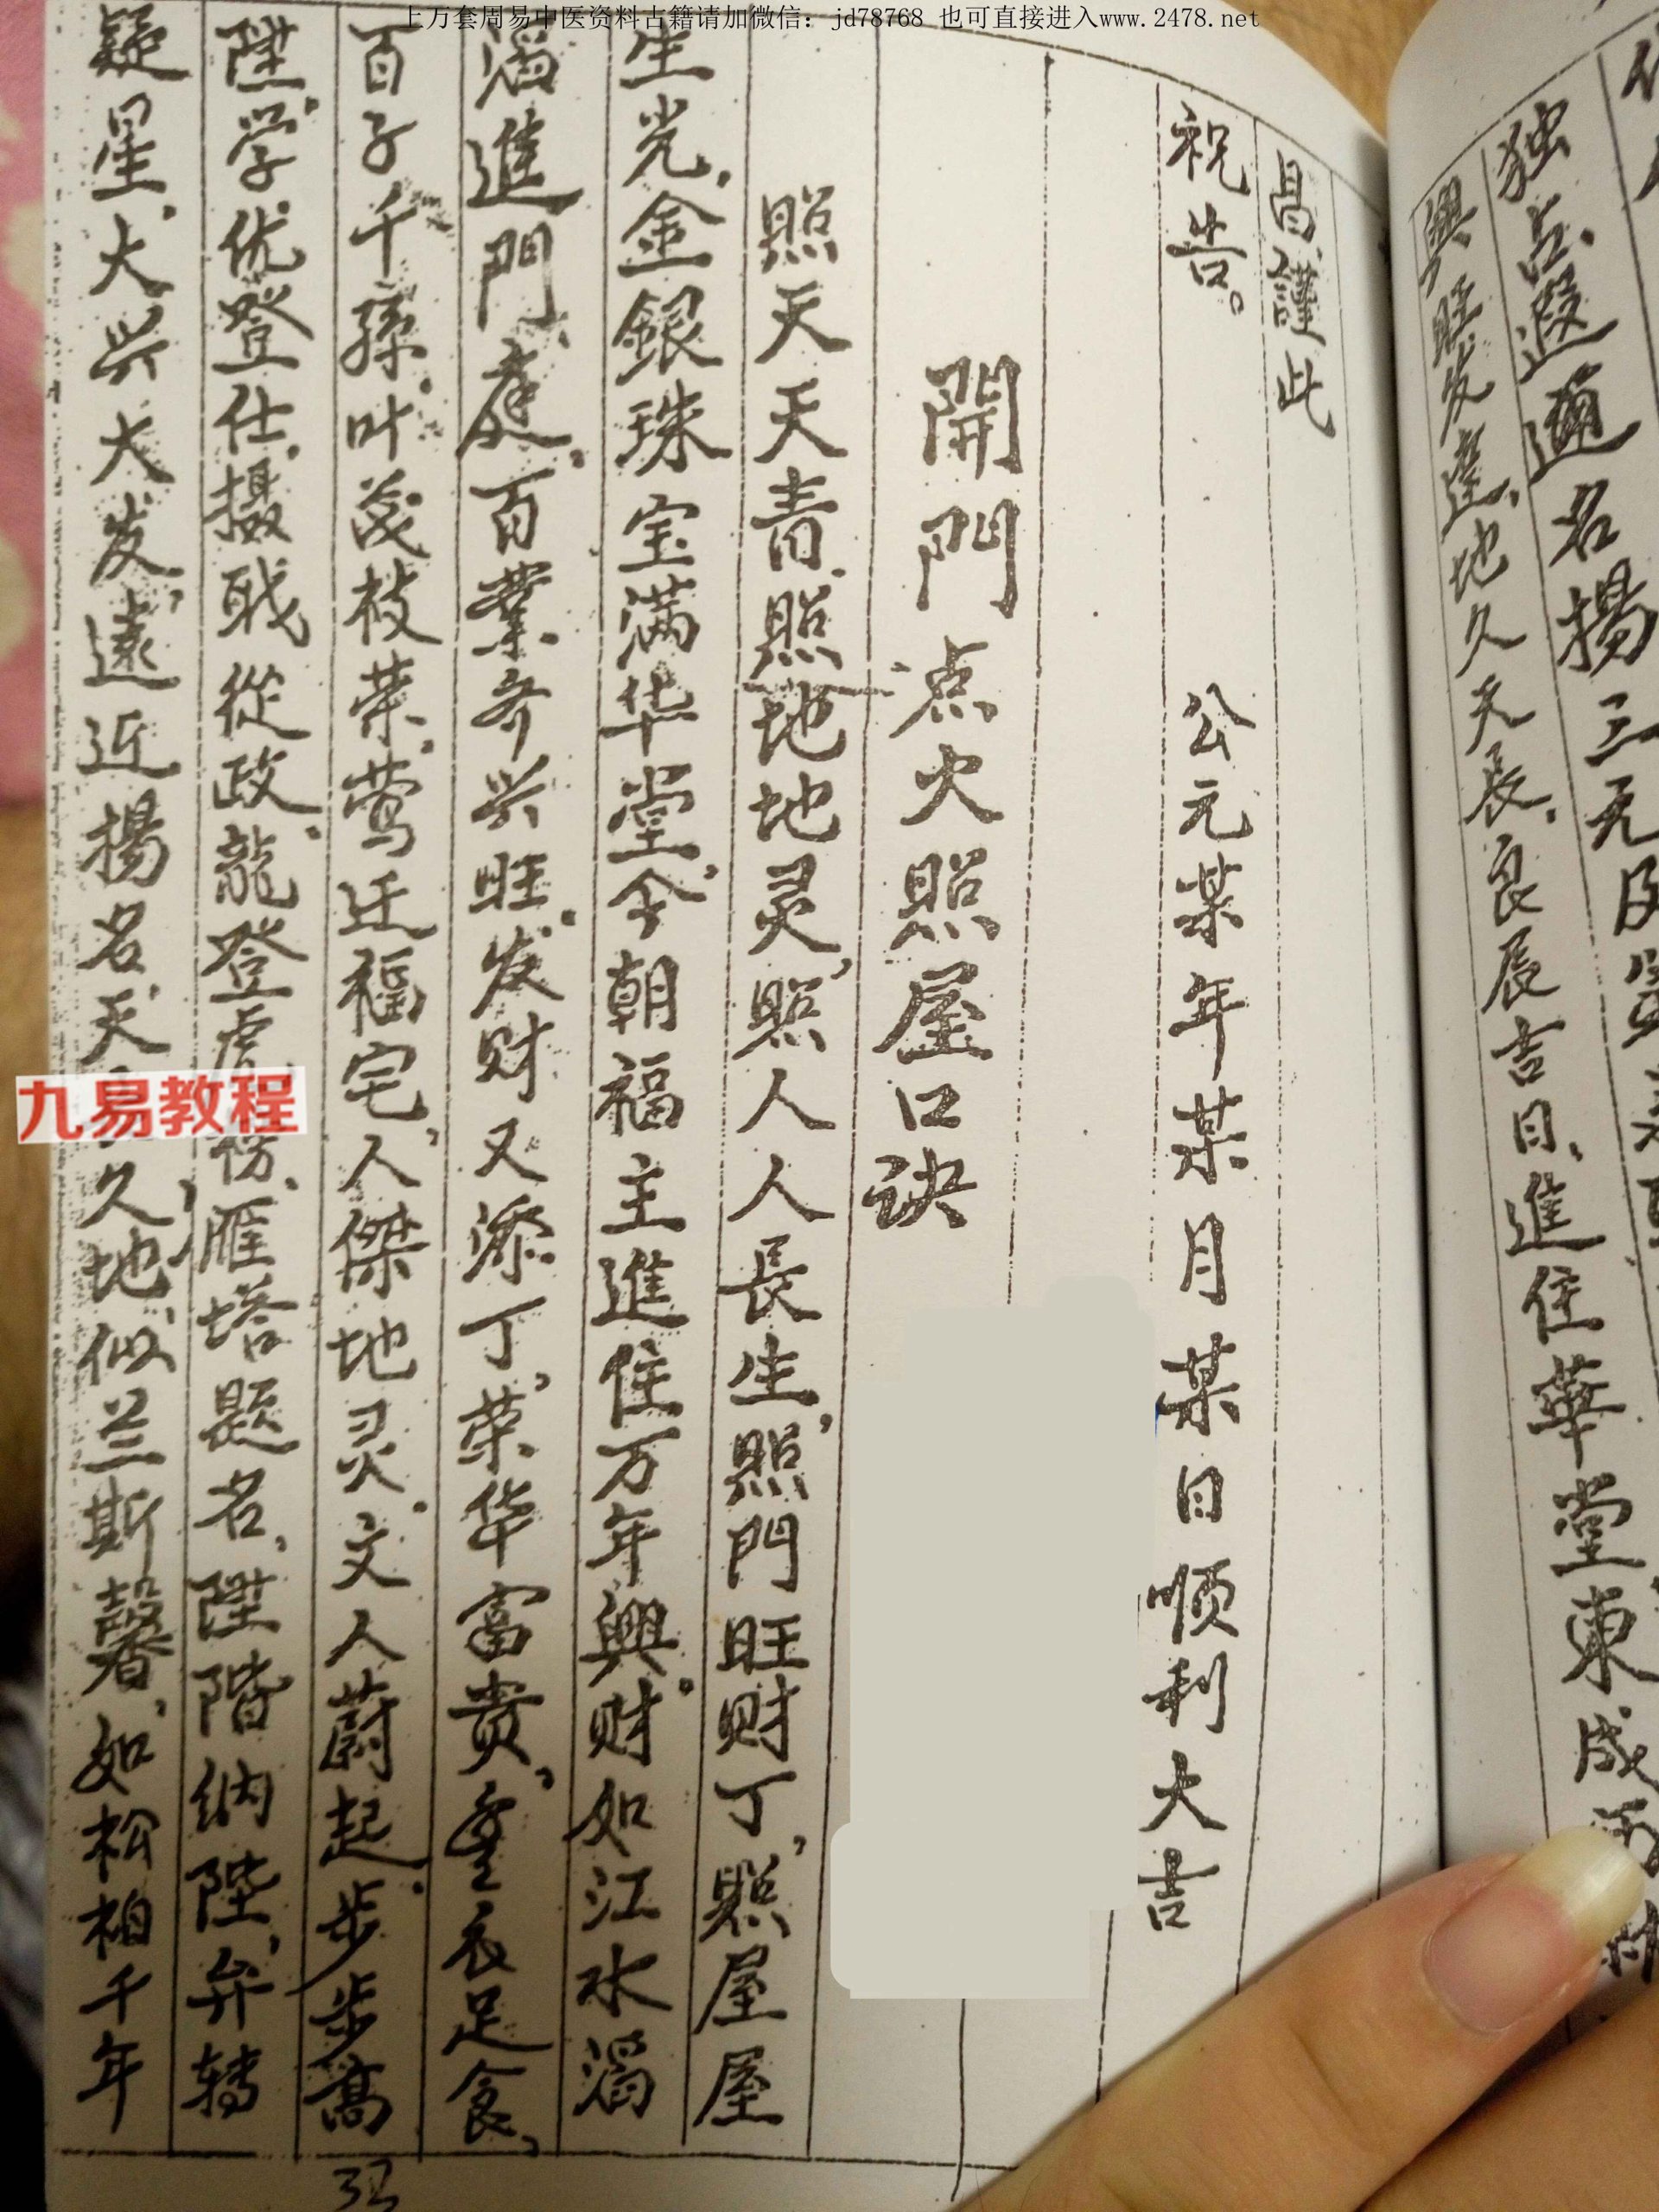 上万套周易中医资料古籍请加微信：jd78768 也可直接进入www.2478.net
名揚三元及
独占 遐迩
興旺发達、地久天長、良辰吉日、進住華堂東成
昌、謹此
祝告。
公元某年某月某日顺利大吉
開門点火照屋口诀
照天天青、照地地灵、照人人長生、照門旺财丁、照屋屋
生光、金銀珠宝满华堂、今朝福主進住万年興、财如江水滔
滔進門庭、百業齐兴旺、发财又添丁、荣华富貴、豐衣足食、
百子千孫、叶茂枝荣、莺迁福宅、人傑地灵、文人蔚起、步步高
陞、学优登仕、摄职從政、龍登虎榜、雁塔题名、陞階纳陛、弁轉
疑星、大兴大发、遠近揚名、天久地、似兰斯馨、如松柏千年
九易教程
32